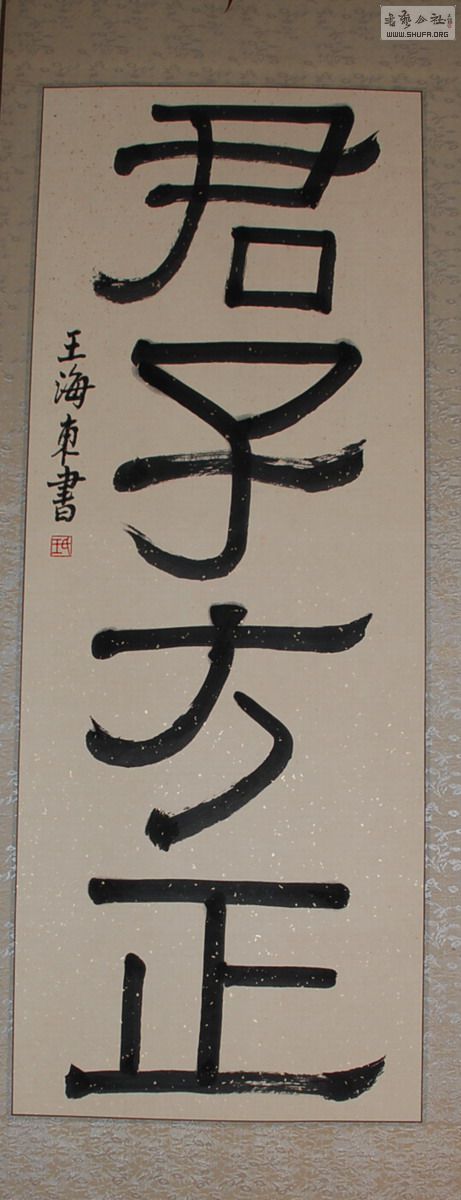 君子方正
王海東書
書藝公社
WWW.SHUFA.ORG